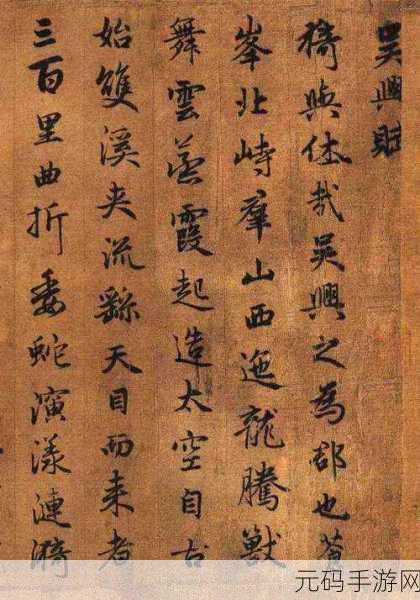 吳興賦
猗與休哉吳興之為郡也蒼
峯北峙羣山西迤龍騰獸
舞雲蒸霞起造太空自古
始雙溪夾流繇天目而来者
三百里曲折委蛇演漾漣漪
元码手游网